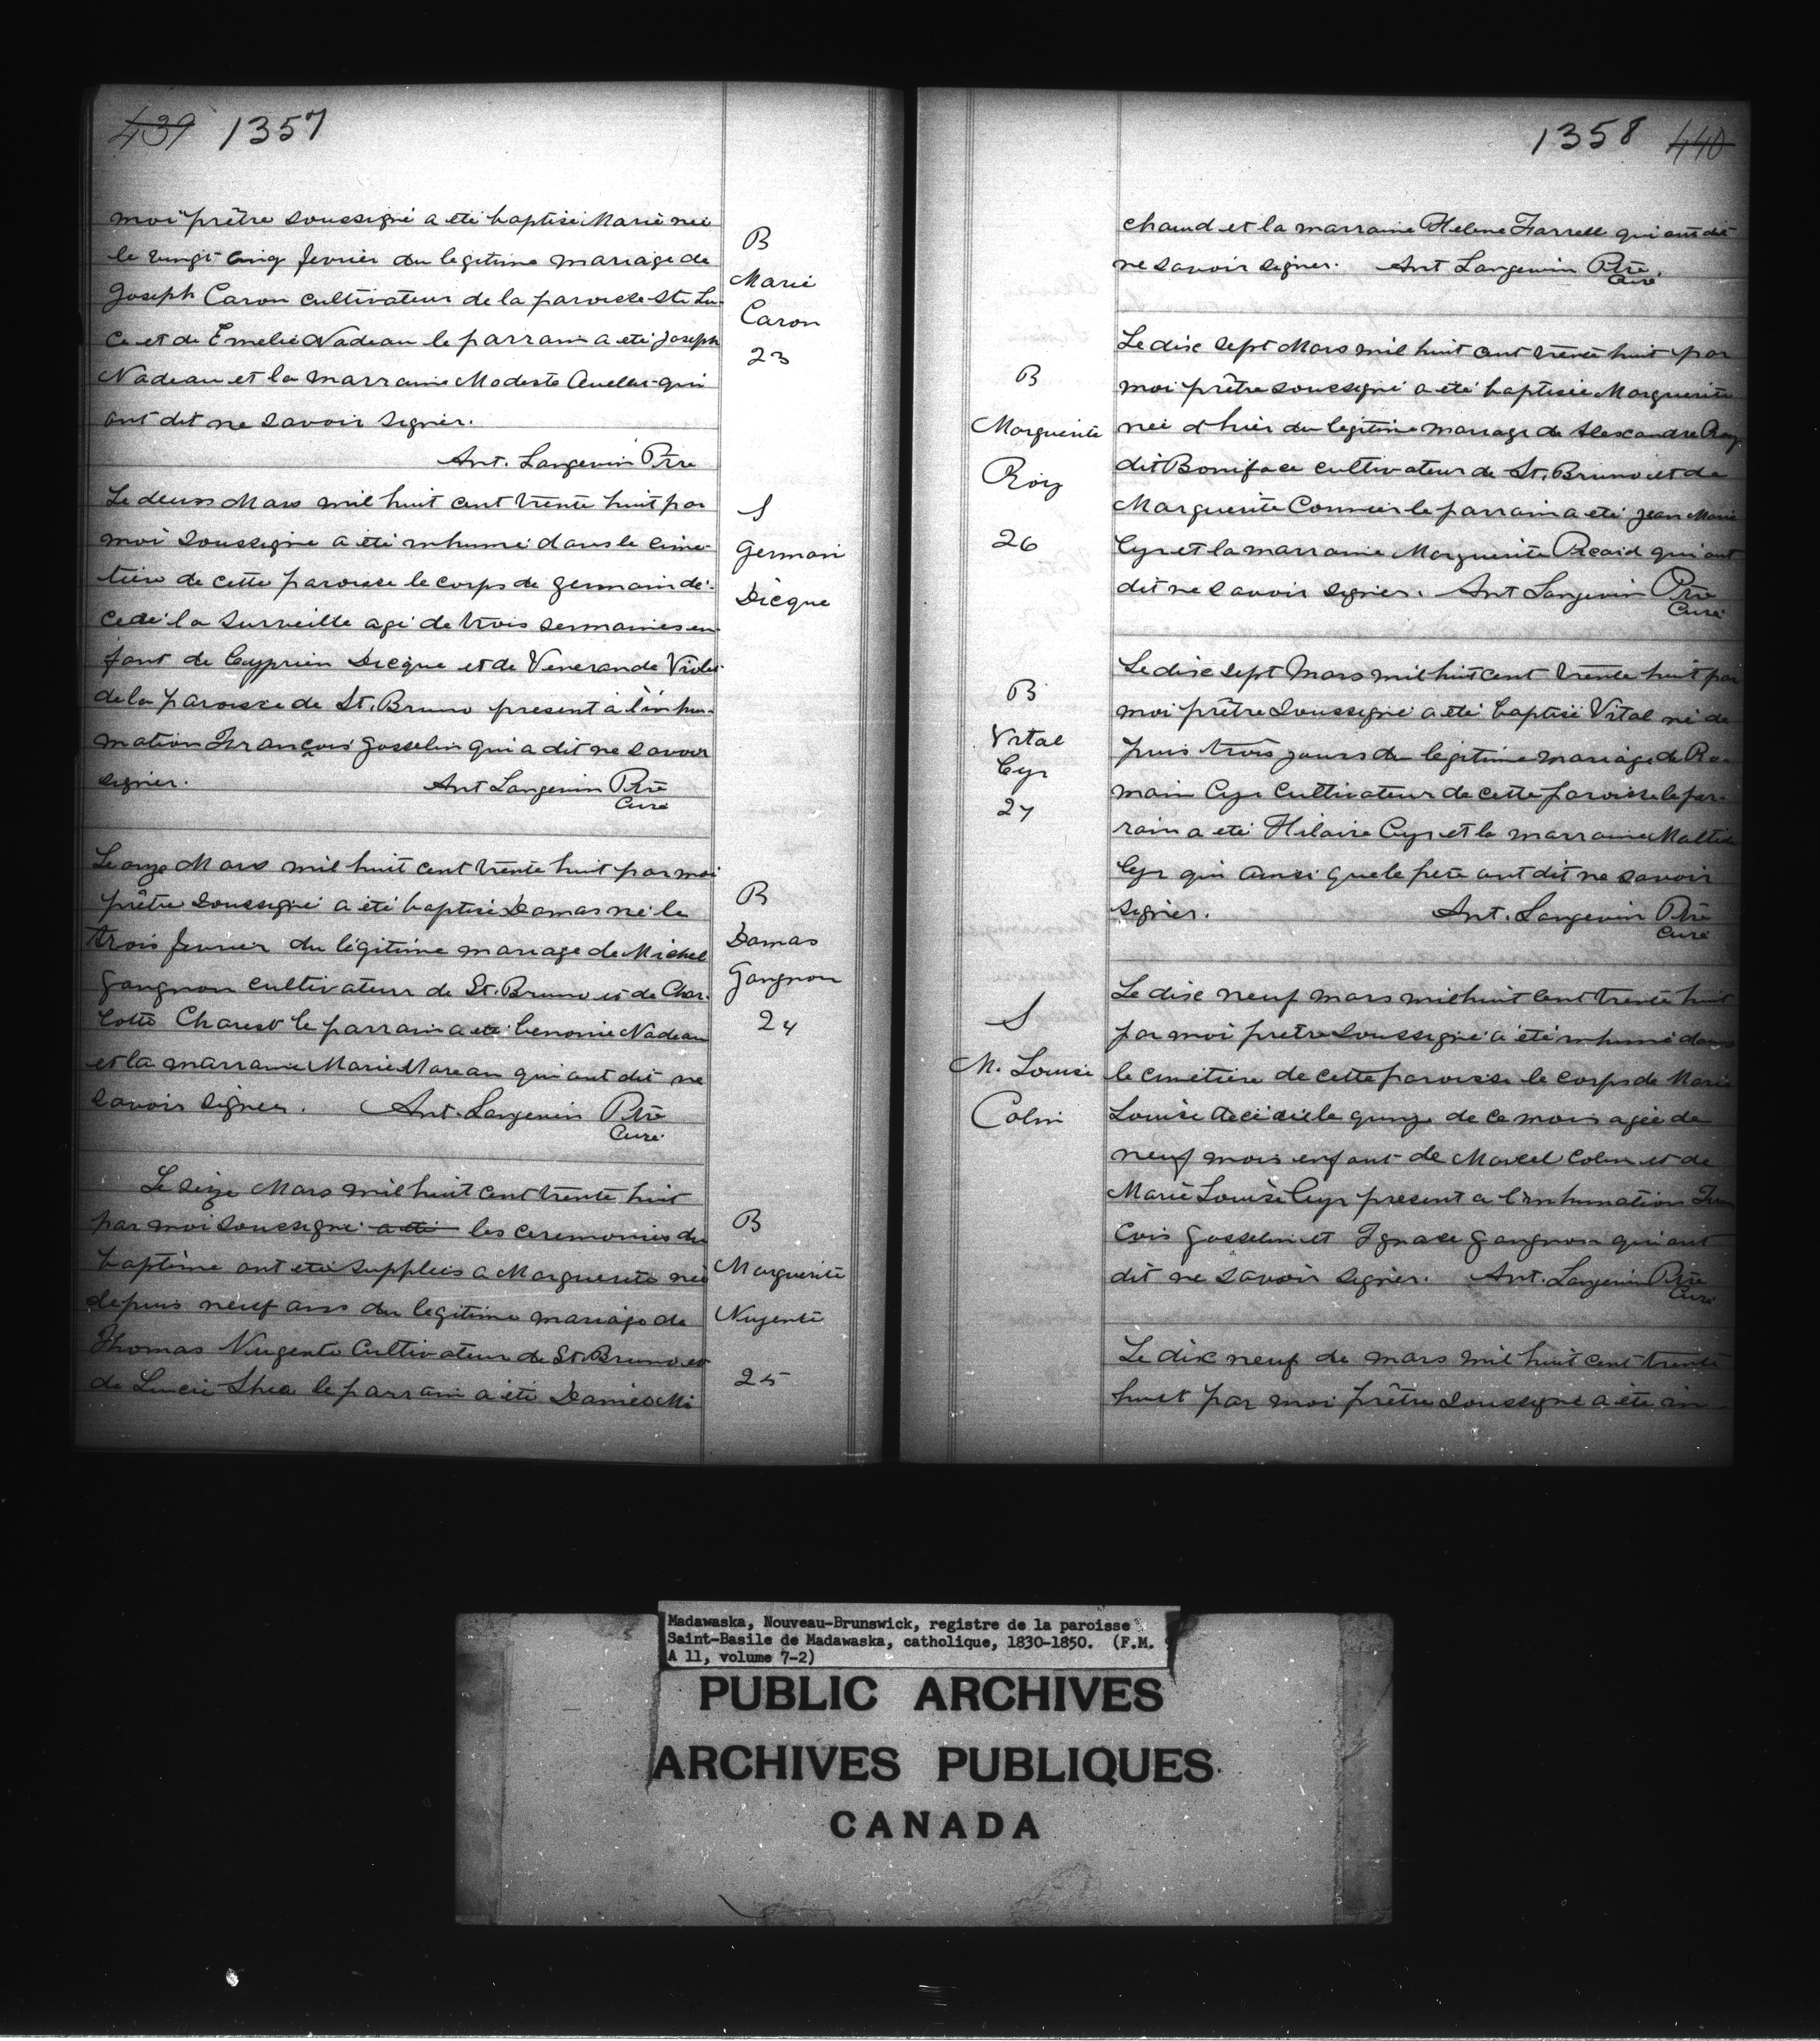 439 1357
moi prêtre soussigné a été baptisé Marie née
le vingt-cinq fevrier du legitime mariage de
Joseph Caron cultivateur de la paroisse Ste Lu-
ce et de Emelie Nadeau le parrain a été Joseph
Nadeau et la marraine Modeste qui
ont dit ne savoir signer.
Ant. Langevin Ptre
B
Marie
Caron
23
Le deux Mars mil huit cent trente huit par
moi soussigné a été inhumé dans le cime-
tière de cette paroisse le corps de germain dé-
cedé la surveille agé de trois semaines en-
fant de Cyprien Dicque et de Venerande
de la paroisse de St. Bruno present à l'inhu-
mation François Gosselin qui a dit ne savoir
signer. Ant Langevin Ptre
Curé
S
Germain
Dicque
Le onze Mars mil huit cent trente huit par moi
prêtre soussigné a été baptisé Damas né le
trois fevrier du légitime mariage de Michel
Gangnon cultivateur de St. Bruno et de Char-
lotte Charest le parrain a été benonie Nadeau
et la marraine Marie Moreau qui ont dit ne
savoir signer. Ant. Langevin Ptre
Curé
B
Damas
Gangnon
24
Le seize Mars mil huit cent trente huit
par moi soussigné a été les ceremonies du
baptême ont été supplées a Marguerite née
depuis neuf ans du legitime mariage de
Thomas Nugente Cultivateur de St. Bruno et
de Lucie Shea le parrain a été Daniel Mi
B
Marguerite
Nugente
25
1358 440
chaud et la marraine Helene Farrell qui ont dit
ne savoir signer. Ant Langevin Ptre.
Curé
Le dix sept Mars mil huit cent trente huit par
moi prêtre soussigné a été baptisée Marguerite
née d'hier du legitime mariage de Alexandre Roy
dit Boniface cultivateur de St. Bruno et de
Marguerite Cormier le parrain a été Jean Marie
Cyr et la marraine Marguerite Picard qui ont
dit ne savoir signer. Ant Langevin Ptre
Curé
B
Marguerite
Roy
26
Le dix sept Mars mil huit cent trente huit par
moi prêtre soussigné a été baptisé Vital né de
puis trois jours du legitime mariage de Ro-
main Cyr Cultivateur de cette paroisse le par-
rain a été Hilaire Cyr et la marraine
Cyr qui ainsi que le père ont dit ne savoir
signer. Ant. Langevin Ptre
Curé
B
Vital
Cyr
27
Le dix neuf mars mil huit cent trente huit
par moi pretre soussigné a été inhumé dans
le cimetière de cette paroisse le corps de Marie
Louise decedée le quinze de ce mois agée de
neuf mois enfant de Marcel Colin et de
Marie Louise Cyr present a l'inhumation Fran
cois Gosselin et Ignace Gangnon qui ont
dit ne savoir signer. Ant. Langevin Ptre
Curé
S
M. Louise
Colin
Le dix neuf de mars mil huit cent trente
huit par moi prêtre soussigné a été in
Madawaska, Nouveau-Brunswick, registre de la paroisse
Saint-Basile de Madawaska, catholique, 1830-1850. (F.M.
A 11, volume 7-2)
PUBLIC ARCHIVES
ARCHIVES PUBLIQUES
CANADA